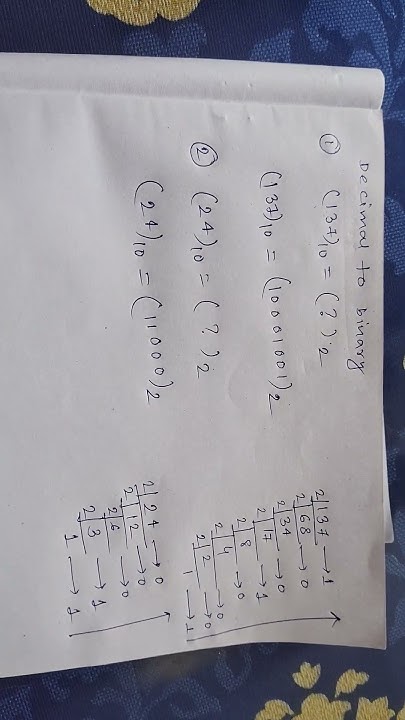 Decimal to binary
① (137)10 = (?)2
(137)10 = (10001001)2
② (24)10 = (?)2
(24)10 = (11000)2
2|137 → 1
2|68 → 0
2|34 → 0
2|17 → 1
2|8 → 0
2|4 → 0
2|2 → 0
1 → 1
2|24 → 0
2|12 → 0
2|6 → 0
2|3 → 1
1 → 1